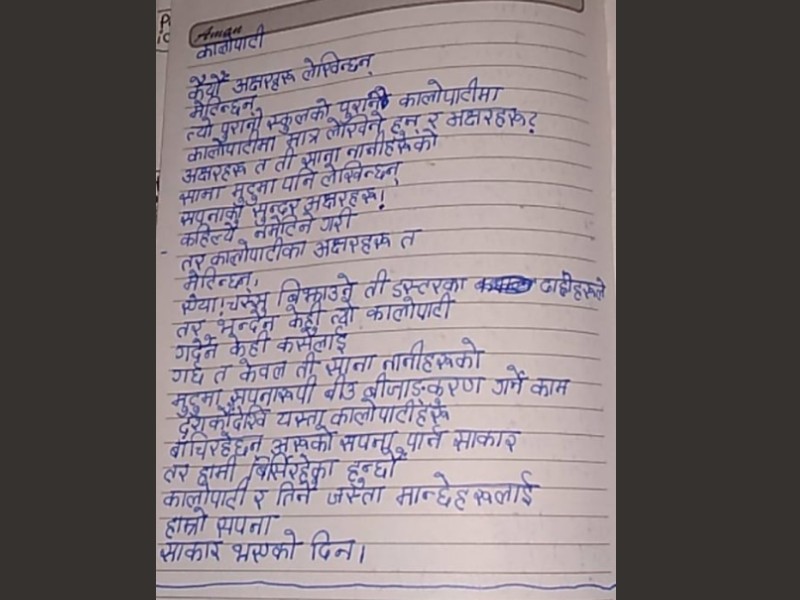 Aman
कालोपाटी
कैयौं अक्षरहरू लेखिन्छन्
मेटिन्छन्
त्यो पुरानो स्कुलको पुरानो कालोपाटीमा
कालोपाटीमा मात्र लेखिने हुन् र अक्षरहरू?
अक्षरहरू त ती साना नानीहरूको
साना मुटुमा पनि लेखिन्छन्
सपनाका सुन्दर अक्षरहरू!
कहिल्यै नमेटिने गरी
तर कालोपाटीका अक्षरहरू त
मेटिन्छन्,
च्वस्स बिझाउने ती डस्टरका दाह्रीहरूले
तर भन्दैन केही त्यो कालोपाटी
गर्दैन केही कसैलाई
गर्छ त केवल ती साना नानीहरूको
मुटुमा सपनारूपी बीउ बीजाङ्कुरण गर्ने काम
दशकौंदेखि यस्ता कालोपाटीहरू
बाँचिरहेछन् अरूको सपना पार्न साकार
तर हामी बिर्सिरहेका हुन्छौं
कालोपाटी र तिनै जस्ता मान्छेहरूलाई
हाम्रो सपना
साकार भएको दिन।